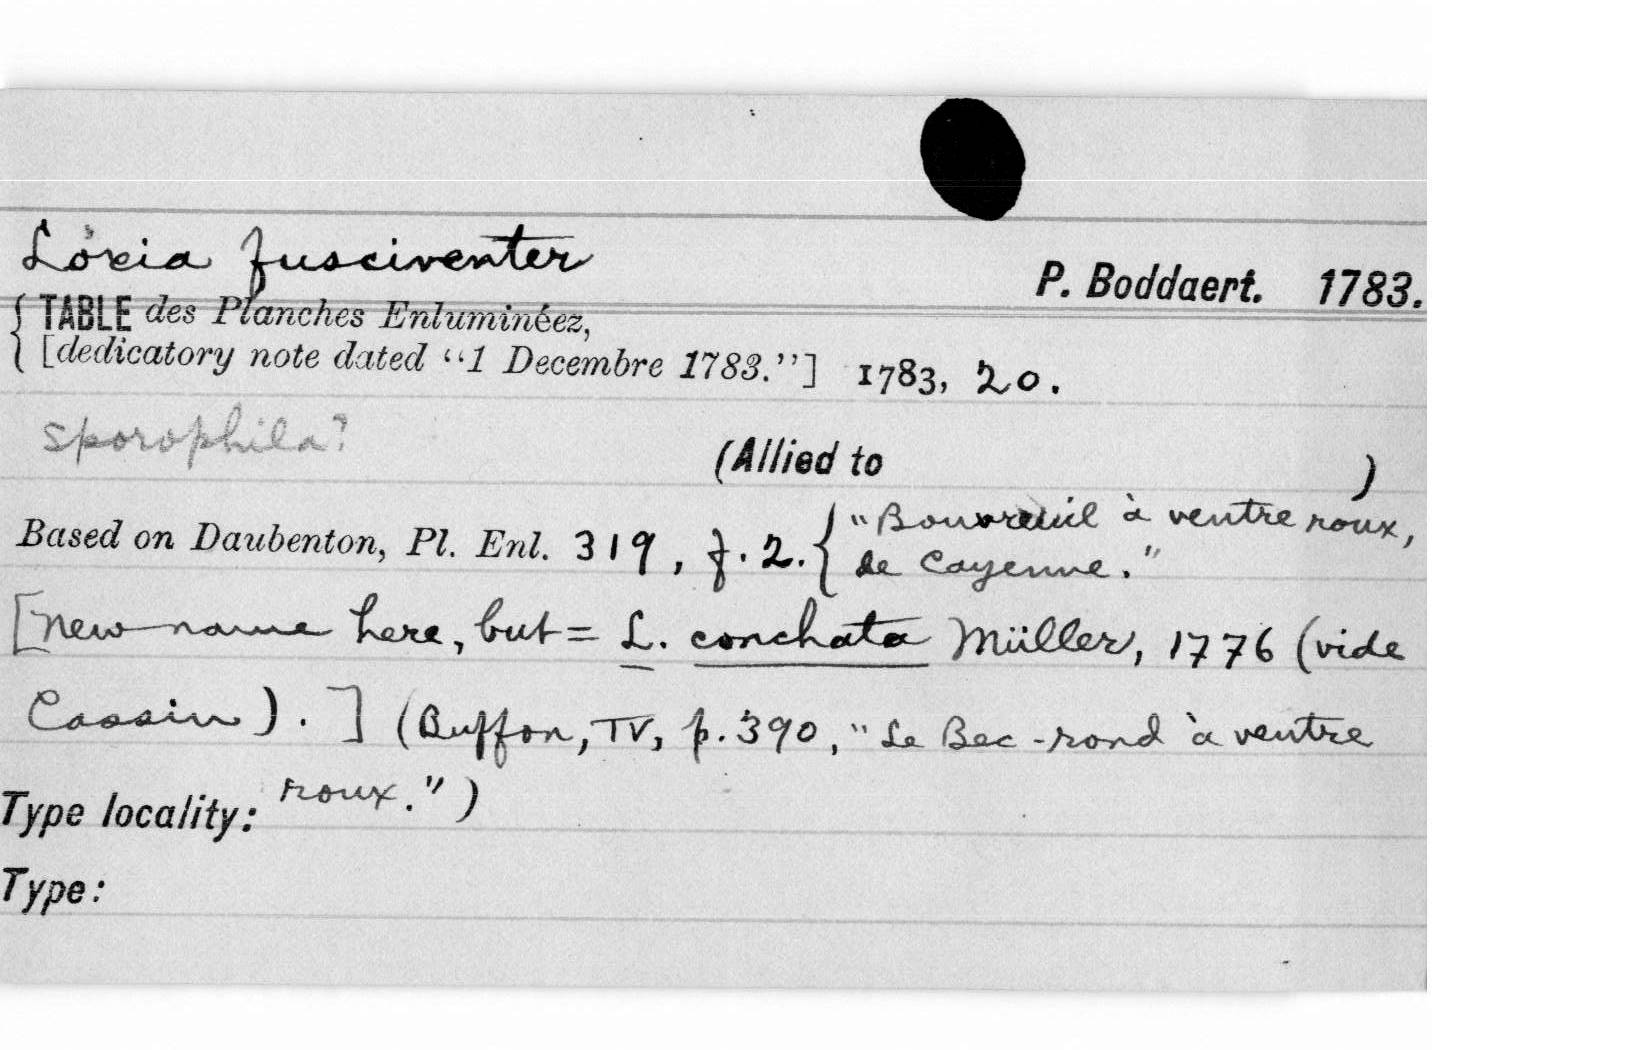 Loxia fusciventer
P. Boddaert. 1783.
{ TABLE des Planches Enluminéez,
[dedicatory note dated "1 Decembre 1783."] 1783, 20.
Sporophila?
(Allied to )
Based on Daubenton, Pl. Enl. 319, f. 2. { "Bouvreuil à ventre roux,
de Cayenne."
[New name here, but = L. conchata Müller, 1776 (vide
Cassin). ] (Buffon, IV, p. 390, "Le Bec-rond à ventre
roux.")
Type locality:
Type: